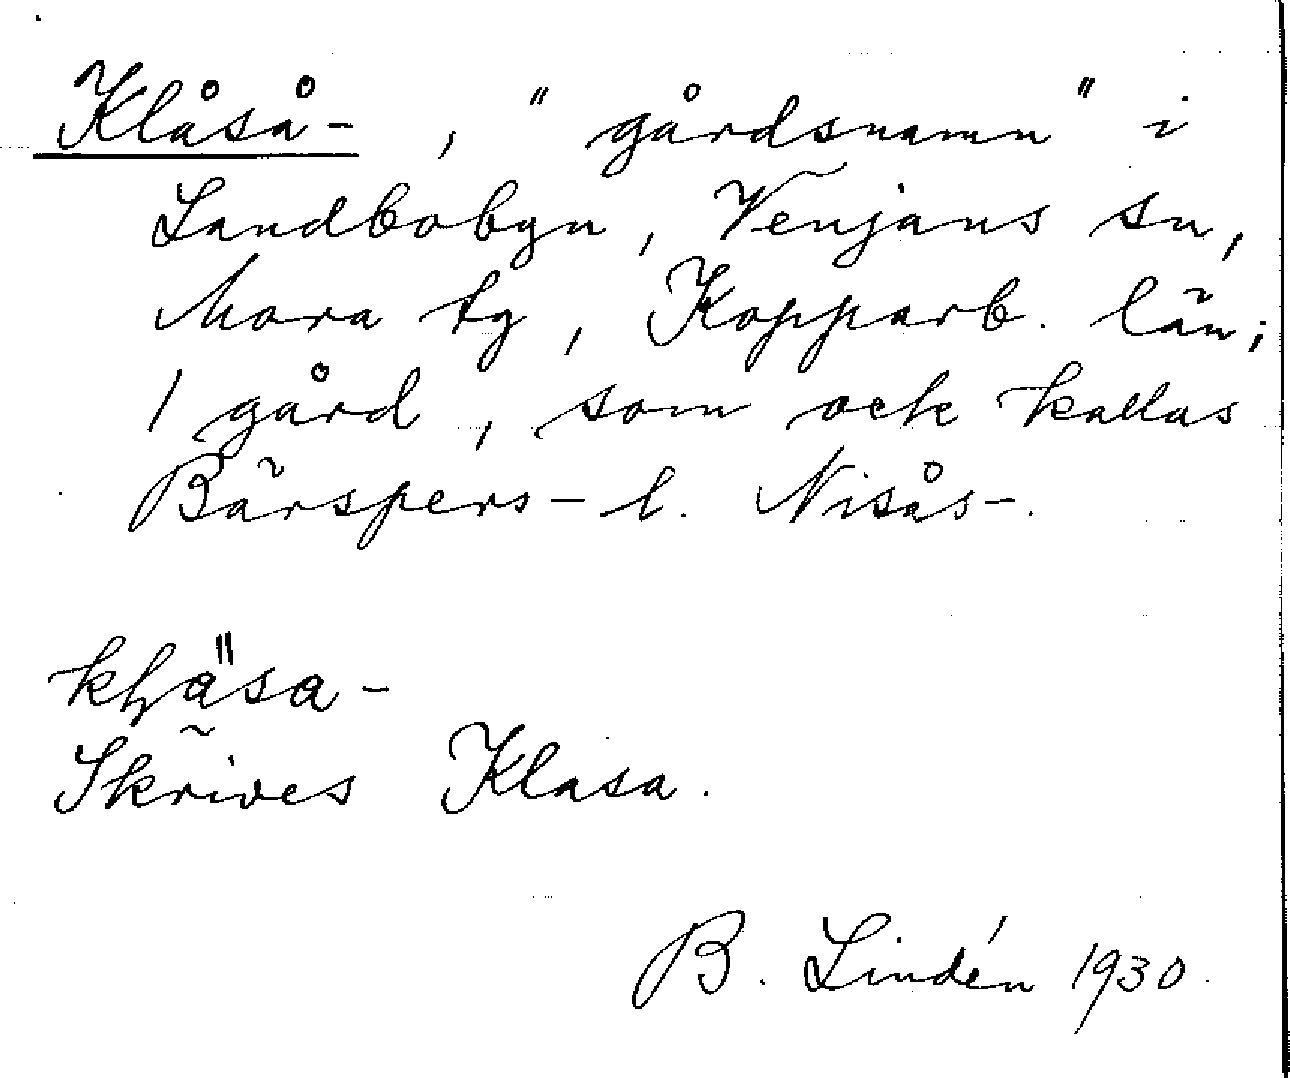 Klåså-, "gårdsnamn" i
Landbobyn, Venjans sn,
Mora tg, Kopparb. län;
1 gård, som ock kallas
Bärspers- l. Nisås-.
Skrives Klasa.
B. Lindén 1930.